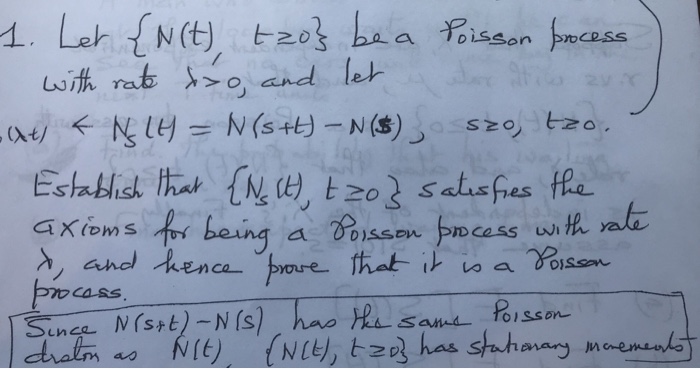 1. Let {N(t), t≥0} be a Poisson process
with rate λ>0, and let
(λt) ← N_s(t) = N(s+t) - N(s), s≥0, t≥0.
Establish that {N_s(t), t≥0} satisfies the
axioms for being a Poisson process with rate
λ, and hence prove that it is a Poisson
process.
Since N(s+t) - N(s) has the same Poisson
draton as N(t) {N(t), t≥0} has stationary increments